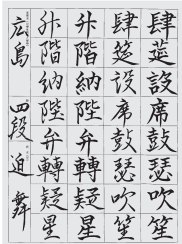 肆筵設席鼓瑟吹笙
肆筵設席鼓瑟吹笙
升階納陛弁轉疑星
升階納陛弁轉疑星
広島 四段 迫 舞